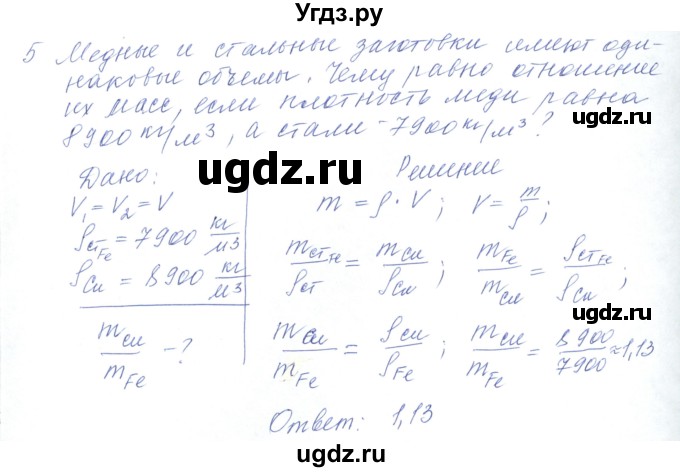 Угдз.ру
5 Медные и стальные заготовки имеют оди-
наковые объемы. Чему равно отношение
их масс, если плотность меди равна
8900 кг/м³, а стали - 7900 кг/м³?
ugdz.ru
ugdz.ru
Дано:
V₁ = V₂ = V
ρст Fe = 7900 кг/м³
ρCu = 8900 кг/м³
mCu/mFe - ?
Решение
m = ρ · V; V = m/ρ;
mст Fe/ρст = mCu/ρCu; mFe/mCu = ρст Fe/ρCu;
mCu/mFe = ρCu/ρFe; mCu/mFe = 8900/7900 ≈ 1,13
Ответ: 1,13
ugdz.ru
ugdz.ru
Угдз.ру